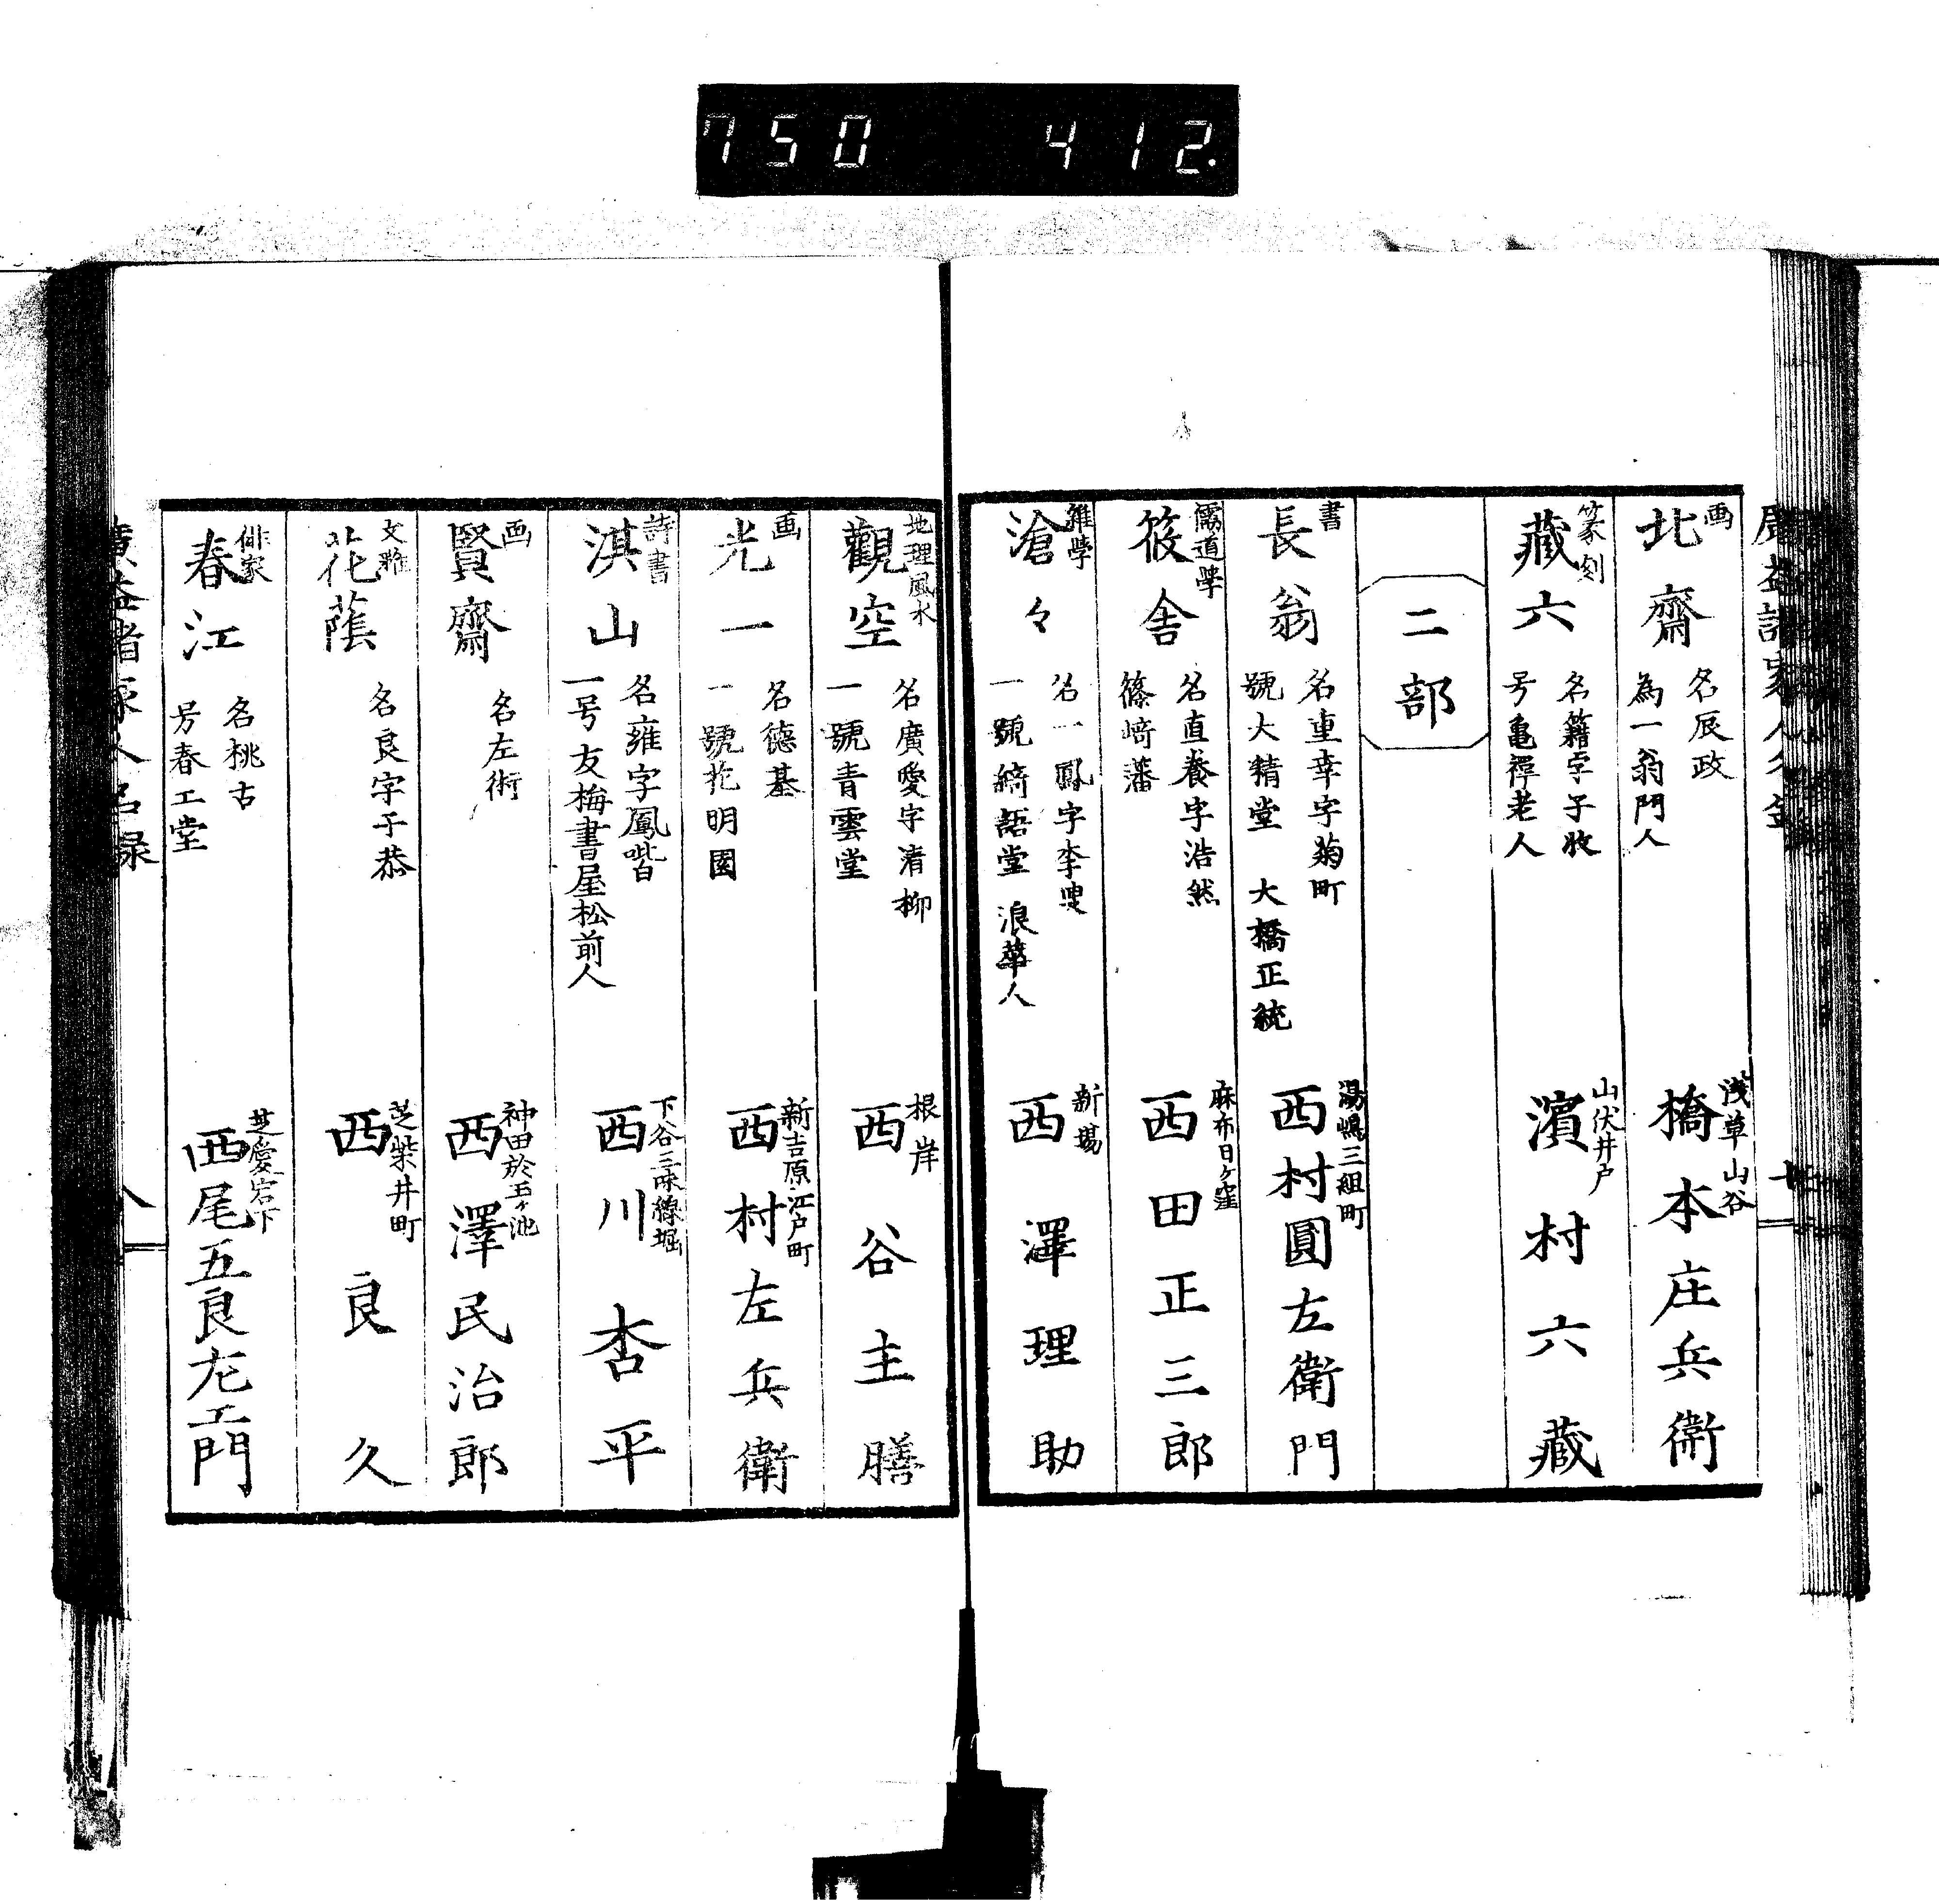 750 412
画
北齋
名辰政
為一翁門人
浅草山谷
橋本庄兵衛
篆刻
藏六
名籍字子收
号亀禪老人
山伏井戸
濱村六藏
二部
書
長翁
名重幸字菊町
號大精堂 大橋正統
湯嶋三組町
西村圓左衛門
儒道學
筱舎
名直養字浩然
篠﨑藩
麻布日ケ窪
西田正三郎
雑學
滄々
名一鳳字李叟
一號綺語堂 浪華人
新場
西澤理助
地理風水
觀空
名廣愛字清柳
一號青雲堂
根岸
西谷主膳
画
光一
名德基
一號花明園
新吉原江戸町
西村左兵衛
詩書
淇山
名雍字鳳喈
一号友梅書屋松前人
下谷三味線堀
西川杏平
画
賢齋
名左術
神田於玉ケ池
西澤民治郎
文雅
花蔭
名良字子恭
芝柴井町
西良久
俳家
春江
名桃古
号春工堂
芝愛宕下
西尾五良左エ門
廣益諸家人名録
八